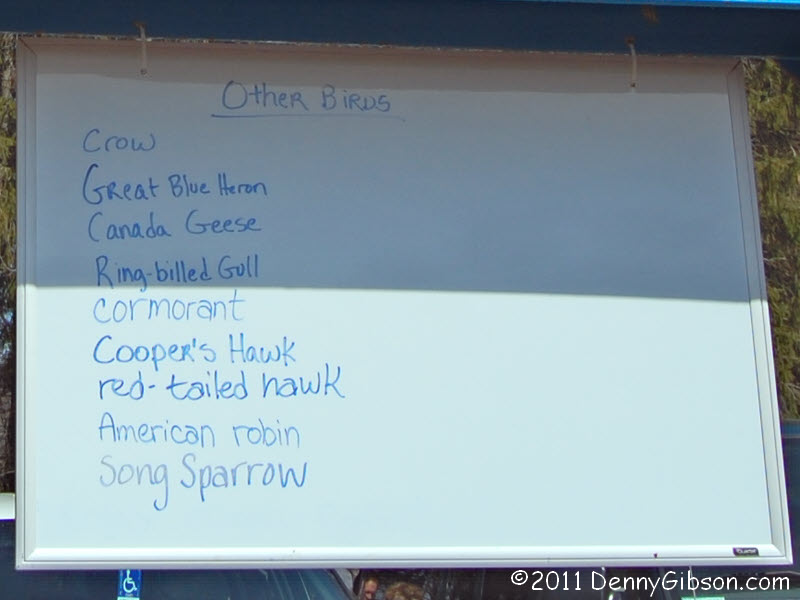 Other Birds
Crow
Great Blue Heron
Canada Geese
Ring-billed Gull
cormorant
Cooper's Hawk
red-tailed hawk
American robin
Song Sparrow
©2011 DennyGibson.com